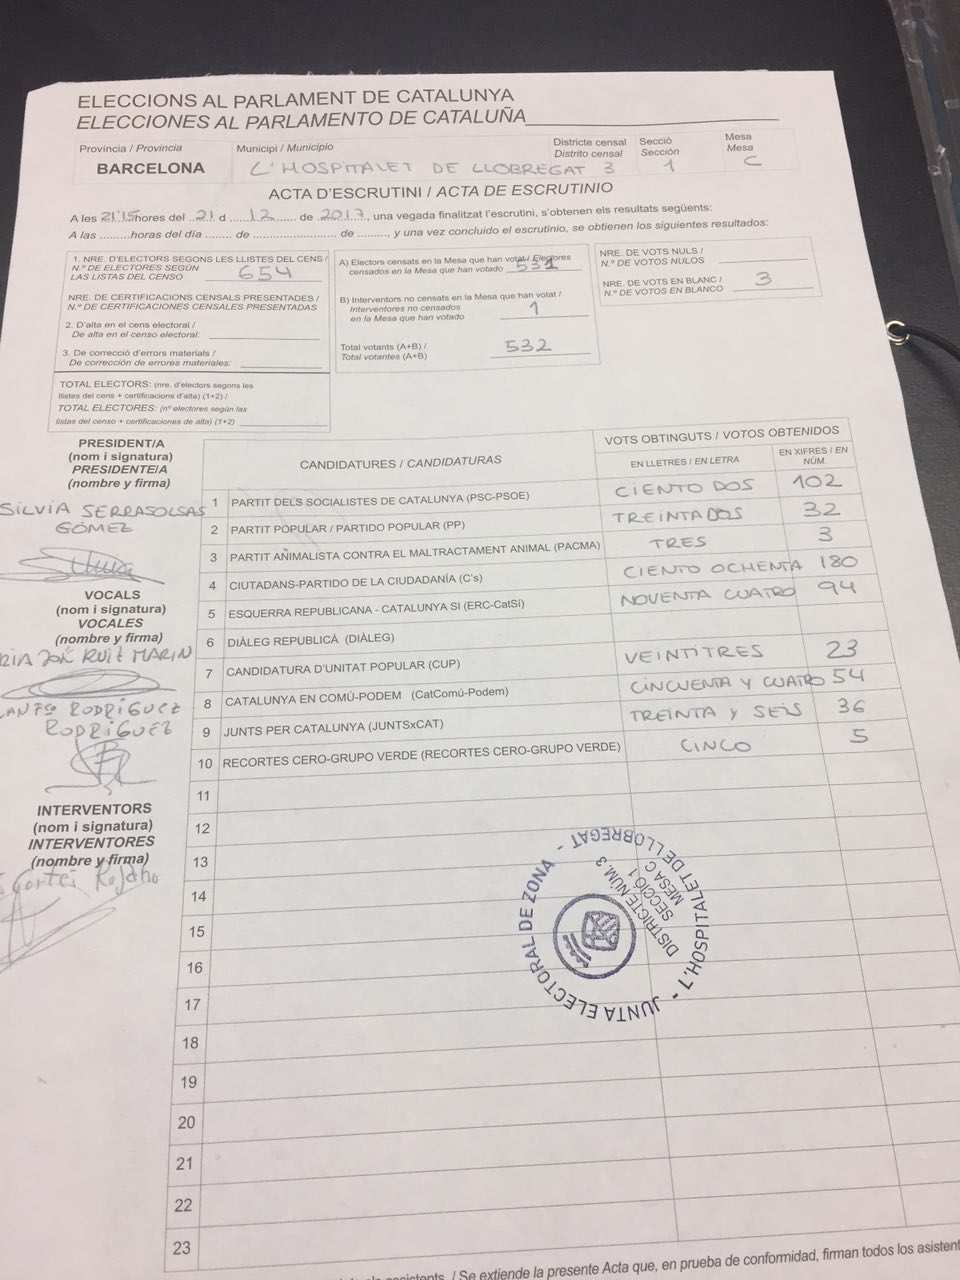 ELECCIONS AL PARLAMENT DE CATALUNYA
ELECCIONES AL PARLAMENTO DE CATALUÑA
Província / Provincia
BARCELONA
Municipi / Municipio
L'HOSPITALET DE LLOBREGAT
Districte censal
Distrito censal
3
Secció
Sección
1
Mesa
Mesa
C
ACTA D'ESCRUTINI / ACTA DE ESCRUTINIO
A les 21'15 hores del 21 d 12 de 2017, una vegada finalitzat l'escrutini, s'obtenen els resultats següents:
A las .........horas del día ....... de ........................ de ........., y una vez concluido el escrutinio, se obtienen los siguientes resultados:
1. NRE. D'ELECTORS SEGONS LES LLISTES DEL CENS /
N.º DE ELECTORES SEGÚN
LAS LISTAS DEL CENSO 654
NRE. DE CERTIFICACIONS CENSALS PRESENTADES /
N.º DE CERTIFICACIONES CENSALES PRESENTADAS
2. D'alta en el cens electoral /
De alta en el censo electoral:
3. De correcció d'errors materials /
De corrección de errores materiales:
TOTAL ELECTORS: (nre. d'electors segons les
llistes del cens + certificacions d'alta) (1+2) /
TOTAL ELECTORES: (nº electores según las
listas del censo + certificaciones de alta) (1+2)
A) Electors censats en la Mesa que han votat / Electores
censados en la Mesa que han votado 531
B) Interventors no censats en la Mesa que han votat /
Interventores no censados
en la Mesa que han votado 1
Total votants (A+B) /
Total votantes (A+B) 532
NRE. DE VOTS NULS /
N.º DE VOTOS NULOS
NRE. DE VOTS EN BLANC /
N.º DE VOTOS EN BLANCO 3
PRESIDENT/A
(nom i signatura)
PRESIDENTE/A
(nombre y firma)
SILVIA SERRASOLSAS
GÓMEZ
VOCALS
(nom i signatura)
VOCALES
(nombre y firma)
RUIZ MARIN
RODRÍGUEZ
RODRÍGUEZ
INTERVENTORS
(nom i signatura)
INTERVENTORES
(nombre y firma)
CANDIDATURES / CANDIDATURAS
VOTS OBTINGUTS / VOTOS OBTENIDOS
EN LLETRES / EN LETRA
EN XIFRES / EN NÚM.
1 PARTIT DELS SOCIALISTES DE CATALUNYA (PSC-PSOE) CIENTO DOS 102
2 PARTIT POPULAR / PARTIDO POPULAR (PP) TREINTADOS 32
3 PARTIT ANIMALISTA CONTRA EL MALTRACTAMENT ANIMAL (PACMA) TRES 3
4 CIUTADANS-PARTIDO DE LA CIUDADANÍA (C's) CIENTO OCHENTA 180
5 ESQUERRA REPUBLICANA - CATALUNYA SI (ERC-CatSí) NOVENTA CUATRO 94
6 DIÀLEG REPUBLICÀ (DIÀLEG)
7 CANDIDATURA D'UNITAT POPULAR (CUP) VEINTITRES 23
8 CATALUNYA EN COMÚ-PODEM (CatComú-Podem) CINCUENTA Y CUATRO 54
9 JUNTS PER CATALUNYA (JUNTSxCAT) TREINTA Y SEIS 36
10 RECORTES CERO-GRUPO VERDE (RECORTES CERO-GRUPO VERDE) CINCO 5
11
12
13
14
15
16
17
18
19
20
21
22
23
JUNTA ELECTORAL DE ZONA - L'HOSPITALET DE LLOBREGAT -
DISTRICTE NÚM. 3
SECCIÓ 1
MESA C
/ Se extiende la presente Acta que, en prueba de conformidad, firman todos los